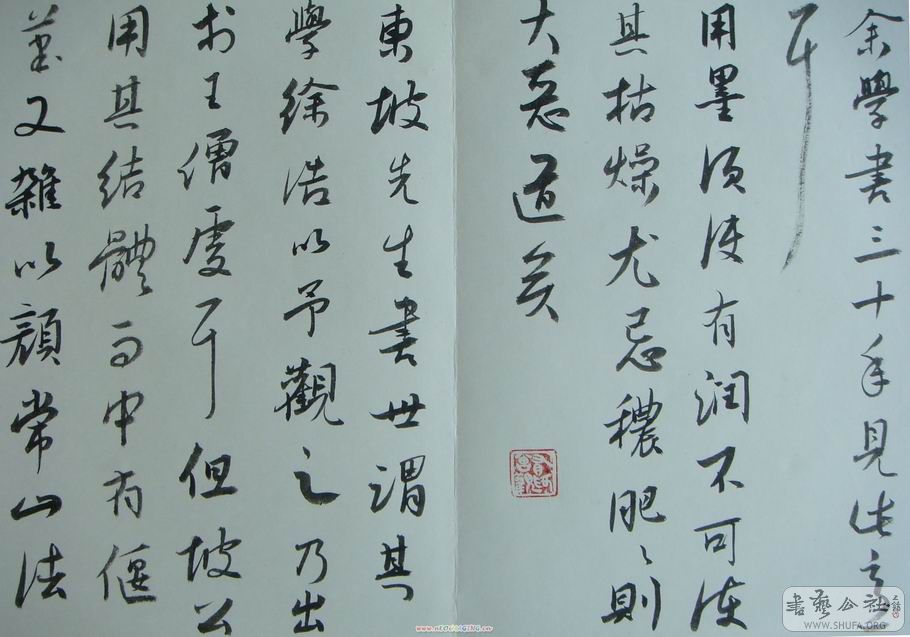 余學書三十年見此
耳
用墨須使有潤不可使
其枯燥尤忌穠肥〻則
大惡道矣
東坡先生書世謂其
學徐浩以予觀之乃出
於王僧虔耳但坡公
用其結體而中有偃
筆又雜以顏常山法
書藝公社
WWW.SHUFA.ORG